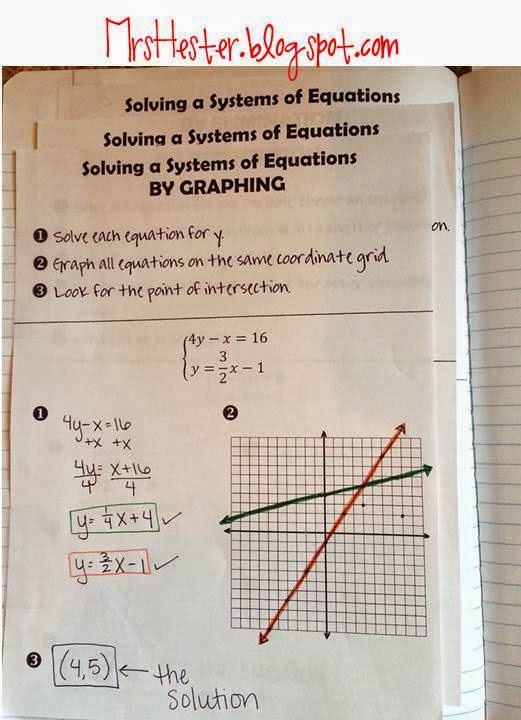 MrsHester.blogspot.com
Solving a Systems of Equations
Solving a Systems of Equations
Solving a Systems of Equations
BY GRAPHING
❶ Solve each equation for y.
on.
❷ Graph all equations on the same coordinate grid
❸ Look for the point of intersection.
{4y − x = 16
y = 3/2 x − 1
❶
4y-x=16
+x +x
4y = x+16
4 4
y= 1/4 x+4 ✓
y= 3/2 x-1 ✓
❷
❸ (4,5) ← the
solution